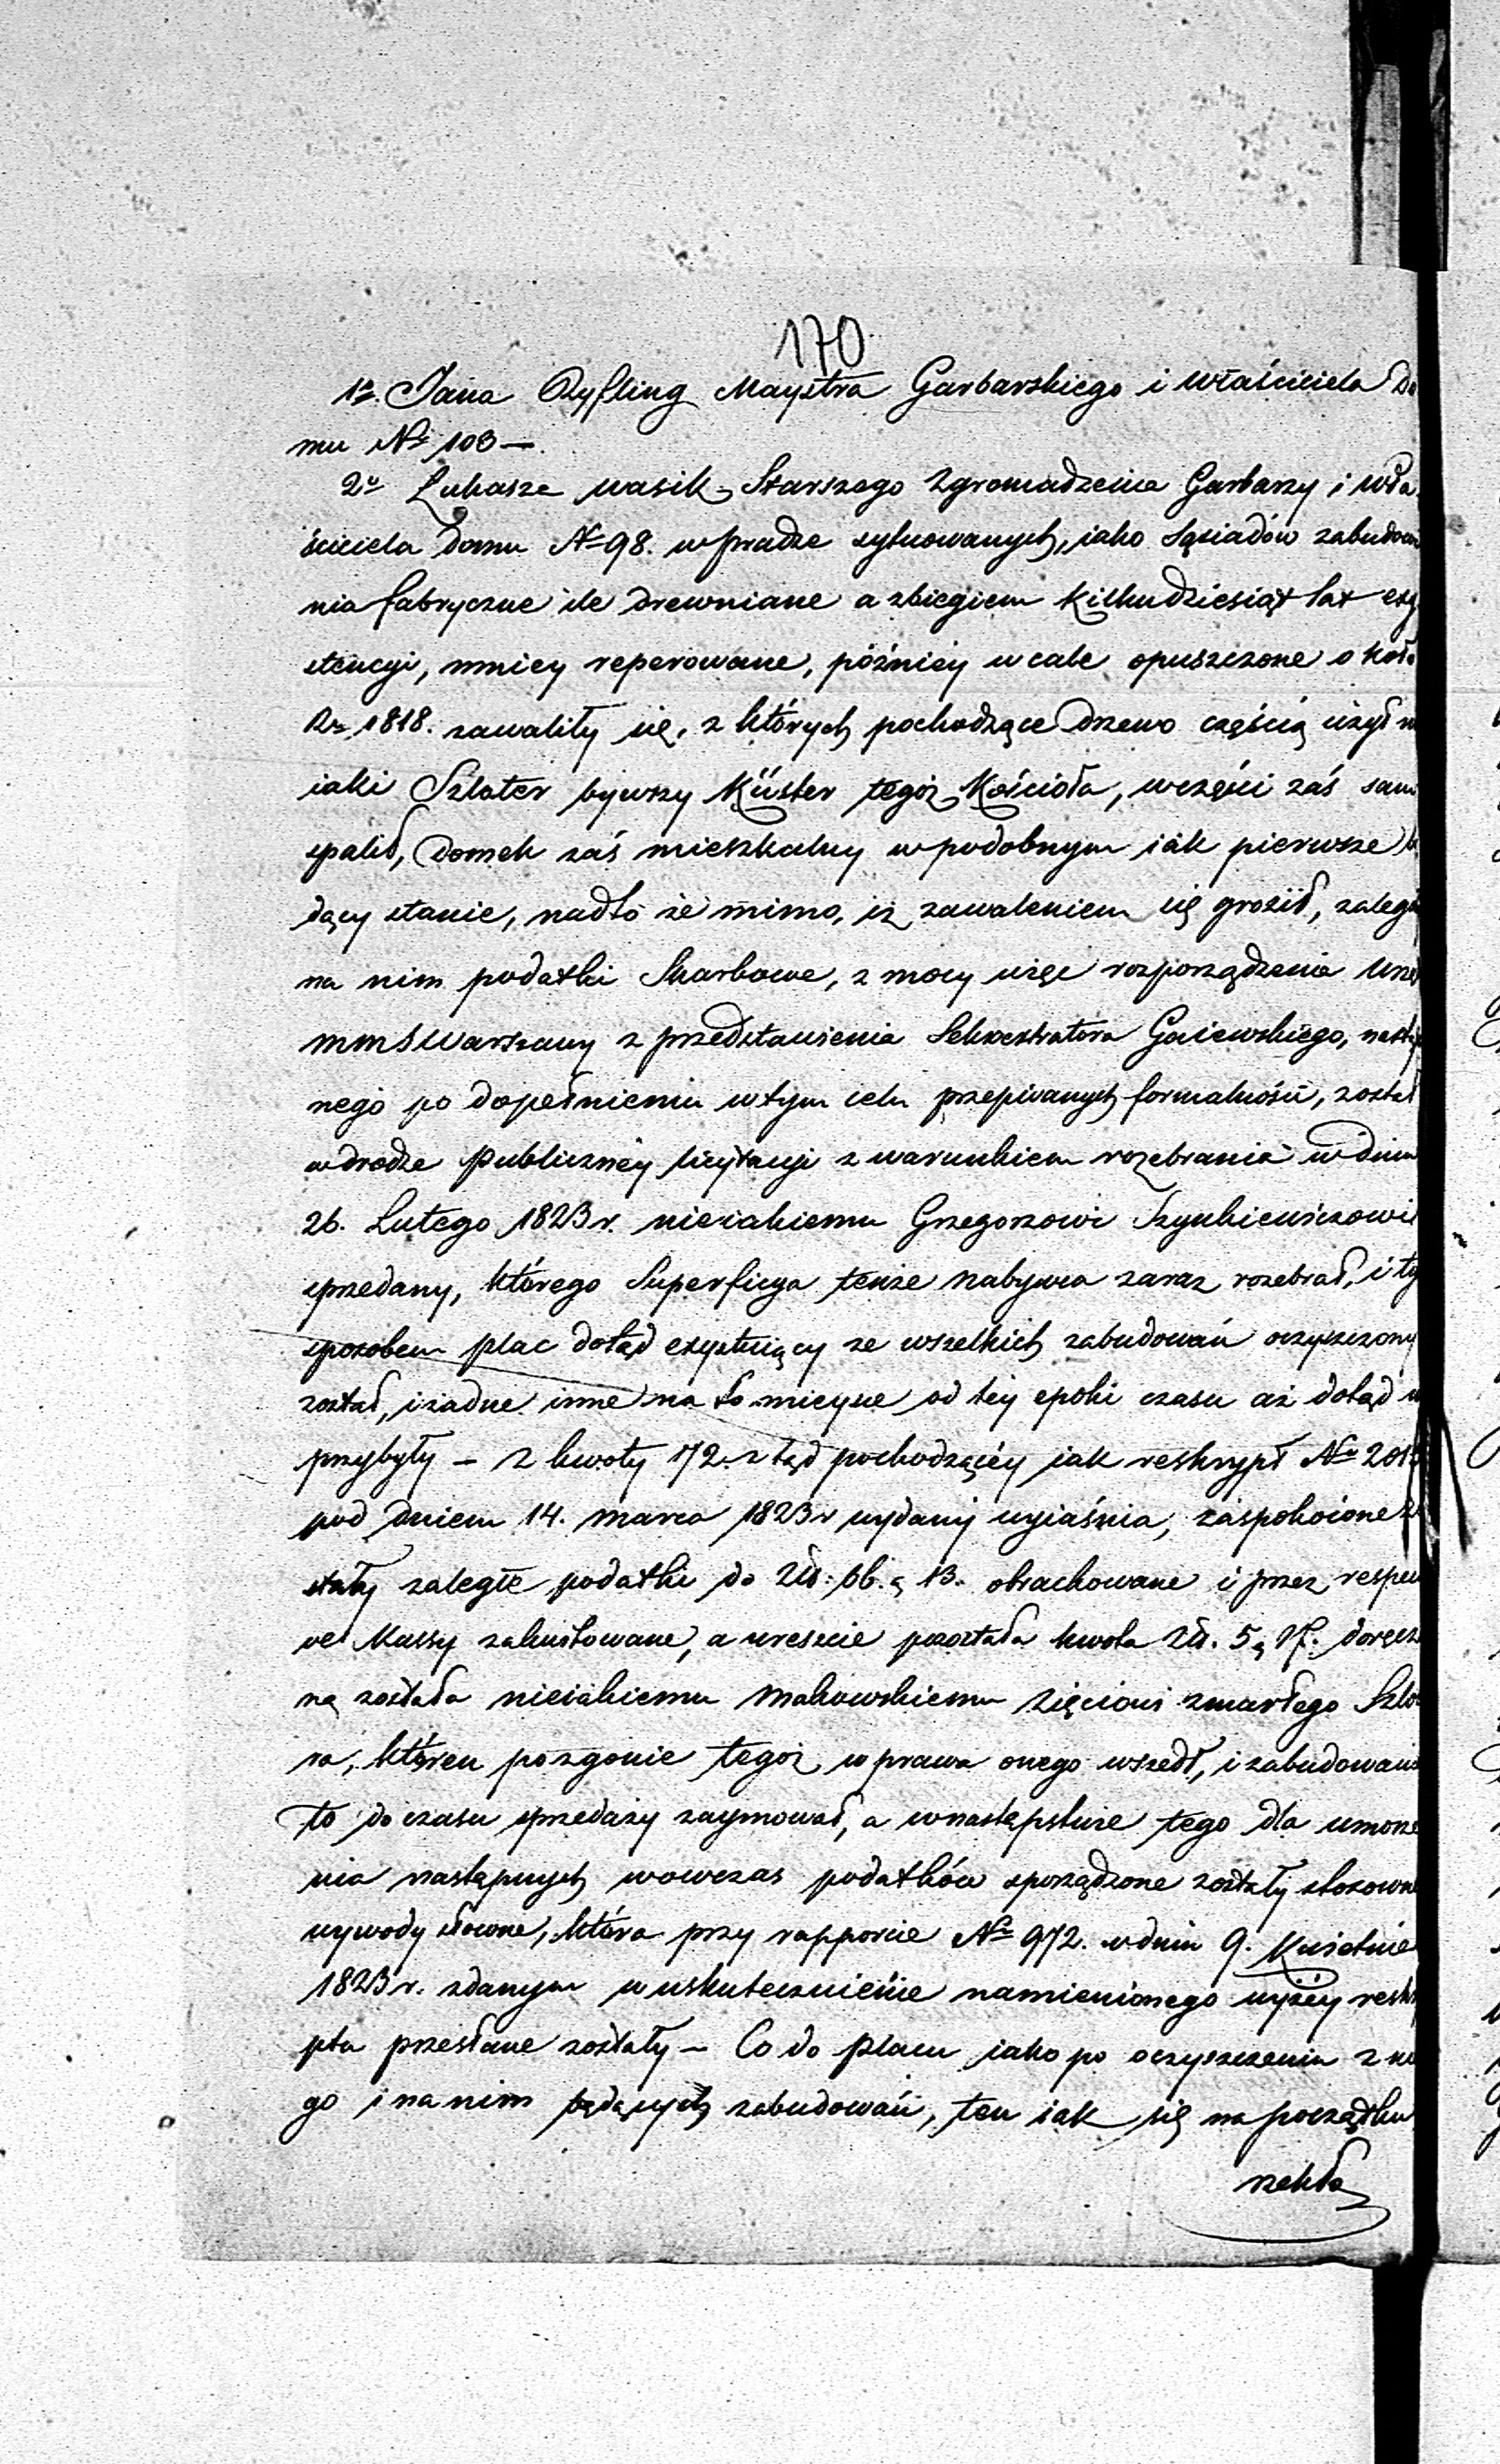 170
1º. Jana Ryfling Maystra Garbarskiego i właściciela Do
mu Nº 103 —.
2º Łukasza Wasik Starszego Zgromadzenia Garbarzy i wła
ściciela domu Nº 98. w pradze sytuowanych, iako Sąsiadów zabudowa
nia fabryczne ile drewniane a zbiegiem kilkudziesiąt lat exy
stencyi, mniey reperowane, późniey wcale opuszczone około
Rº 1818. zawaliły się, z których pochodzące drzewo częścią użył n
iaki Szlater bywszy Küster tegoż Kościoła, w części zaś sam
spalił, Domek zaś mieszkalny w podobnym iak pierwsze b
dący stanie, nadto że mimo, iż zawaleniem się groził, zaległ
na nim podatki Skarbowe, z mocy więc rozporządzenia Urzę
MMSWarszawy z przedstawienia Sekwestratora Gaiewskiego, nastą
nego po dopełnieniu w tym celu przepisanych formalności, został
w drodze publiczney licytacyi z warunkiem rozebrania w dniu
26. Lutego 1823 r. nieiakiemu Grzegorzowi Szynkiewiczowi
sprzedany, którego Superficya tenże nabywca zaraz rozebrał, i ty
sposobem plac dotąd exystuiący ze wszelkich zabudowań oczyszczony
został, i żadne inne na to mieysce od tey epoki czasu aż dotąd n
przybyły — z kwoty 172. ztąd pochodzącéy iak reskrypt Nº 201
pod dniem 14. marca 1823 r wydany wyiaśnia, zaspokoione z
stały zaległe podatki do Zł. 66. g 13. obrachowane i przez respec
ve Kassy zakwitowane, a wreszcie pozostała kwota Zł. 5 g 17. doręcz
ną została nieiakiemu Makowskiemu zięciowi zmarłego Szla
ra, któren po zgonie tegoż w prawa onego wszedł, i zabudowani
to do czasu sprzedaży zaymował, a w następstwie tego dla umorze
nia następnych wowczas podatków sporządzone zostały stosowne
wywody słowne, które przy rapporcie Nº 972. w dniu 9. Kwietnia
1823 r. zdanym w uskutecznienie namienionego wyżéy reskr
ptu przesłane zostały — Co do placu iako po oczyszczeniu z ni
go i na nim będących zabudowań, ten iak się na początku
rzekło